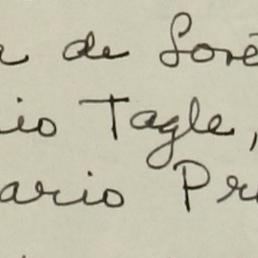 de Soré
io Tagle,
ario Pr